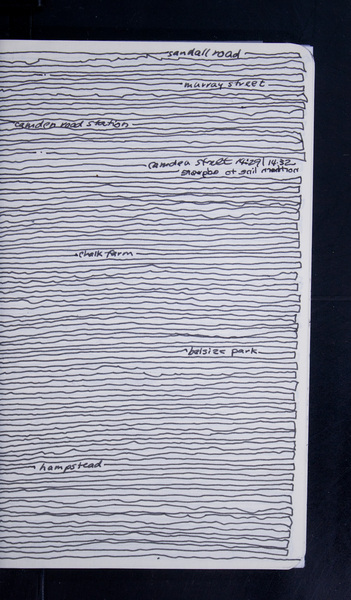 sandall road
murray street
camden road station
camden street 14:29 | 14:32
at
chalk farm
belsize park
hampstead